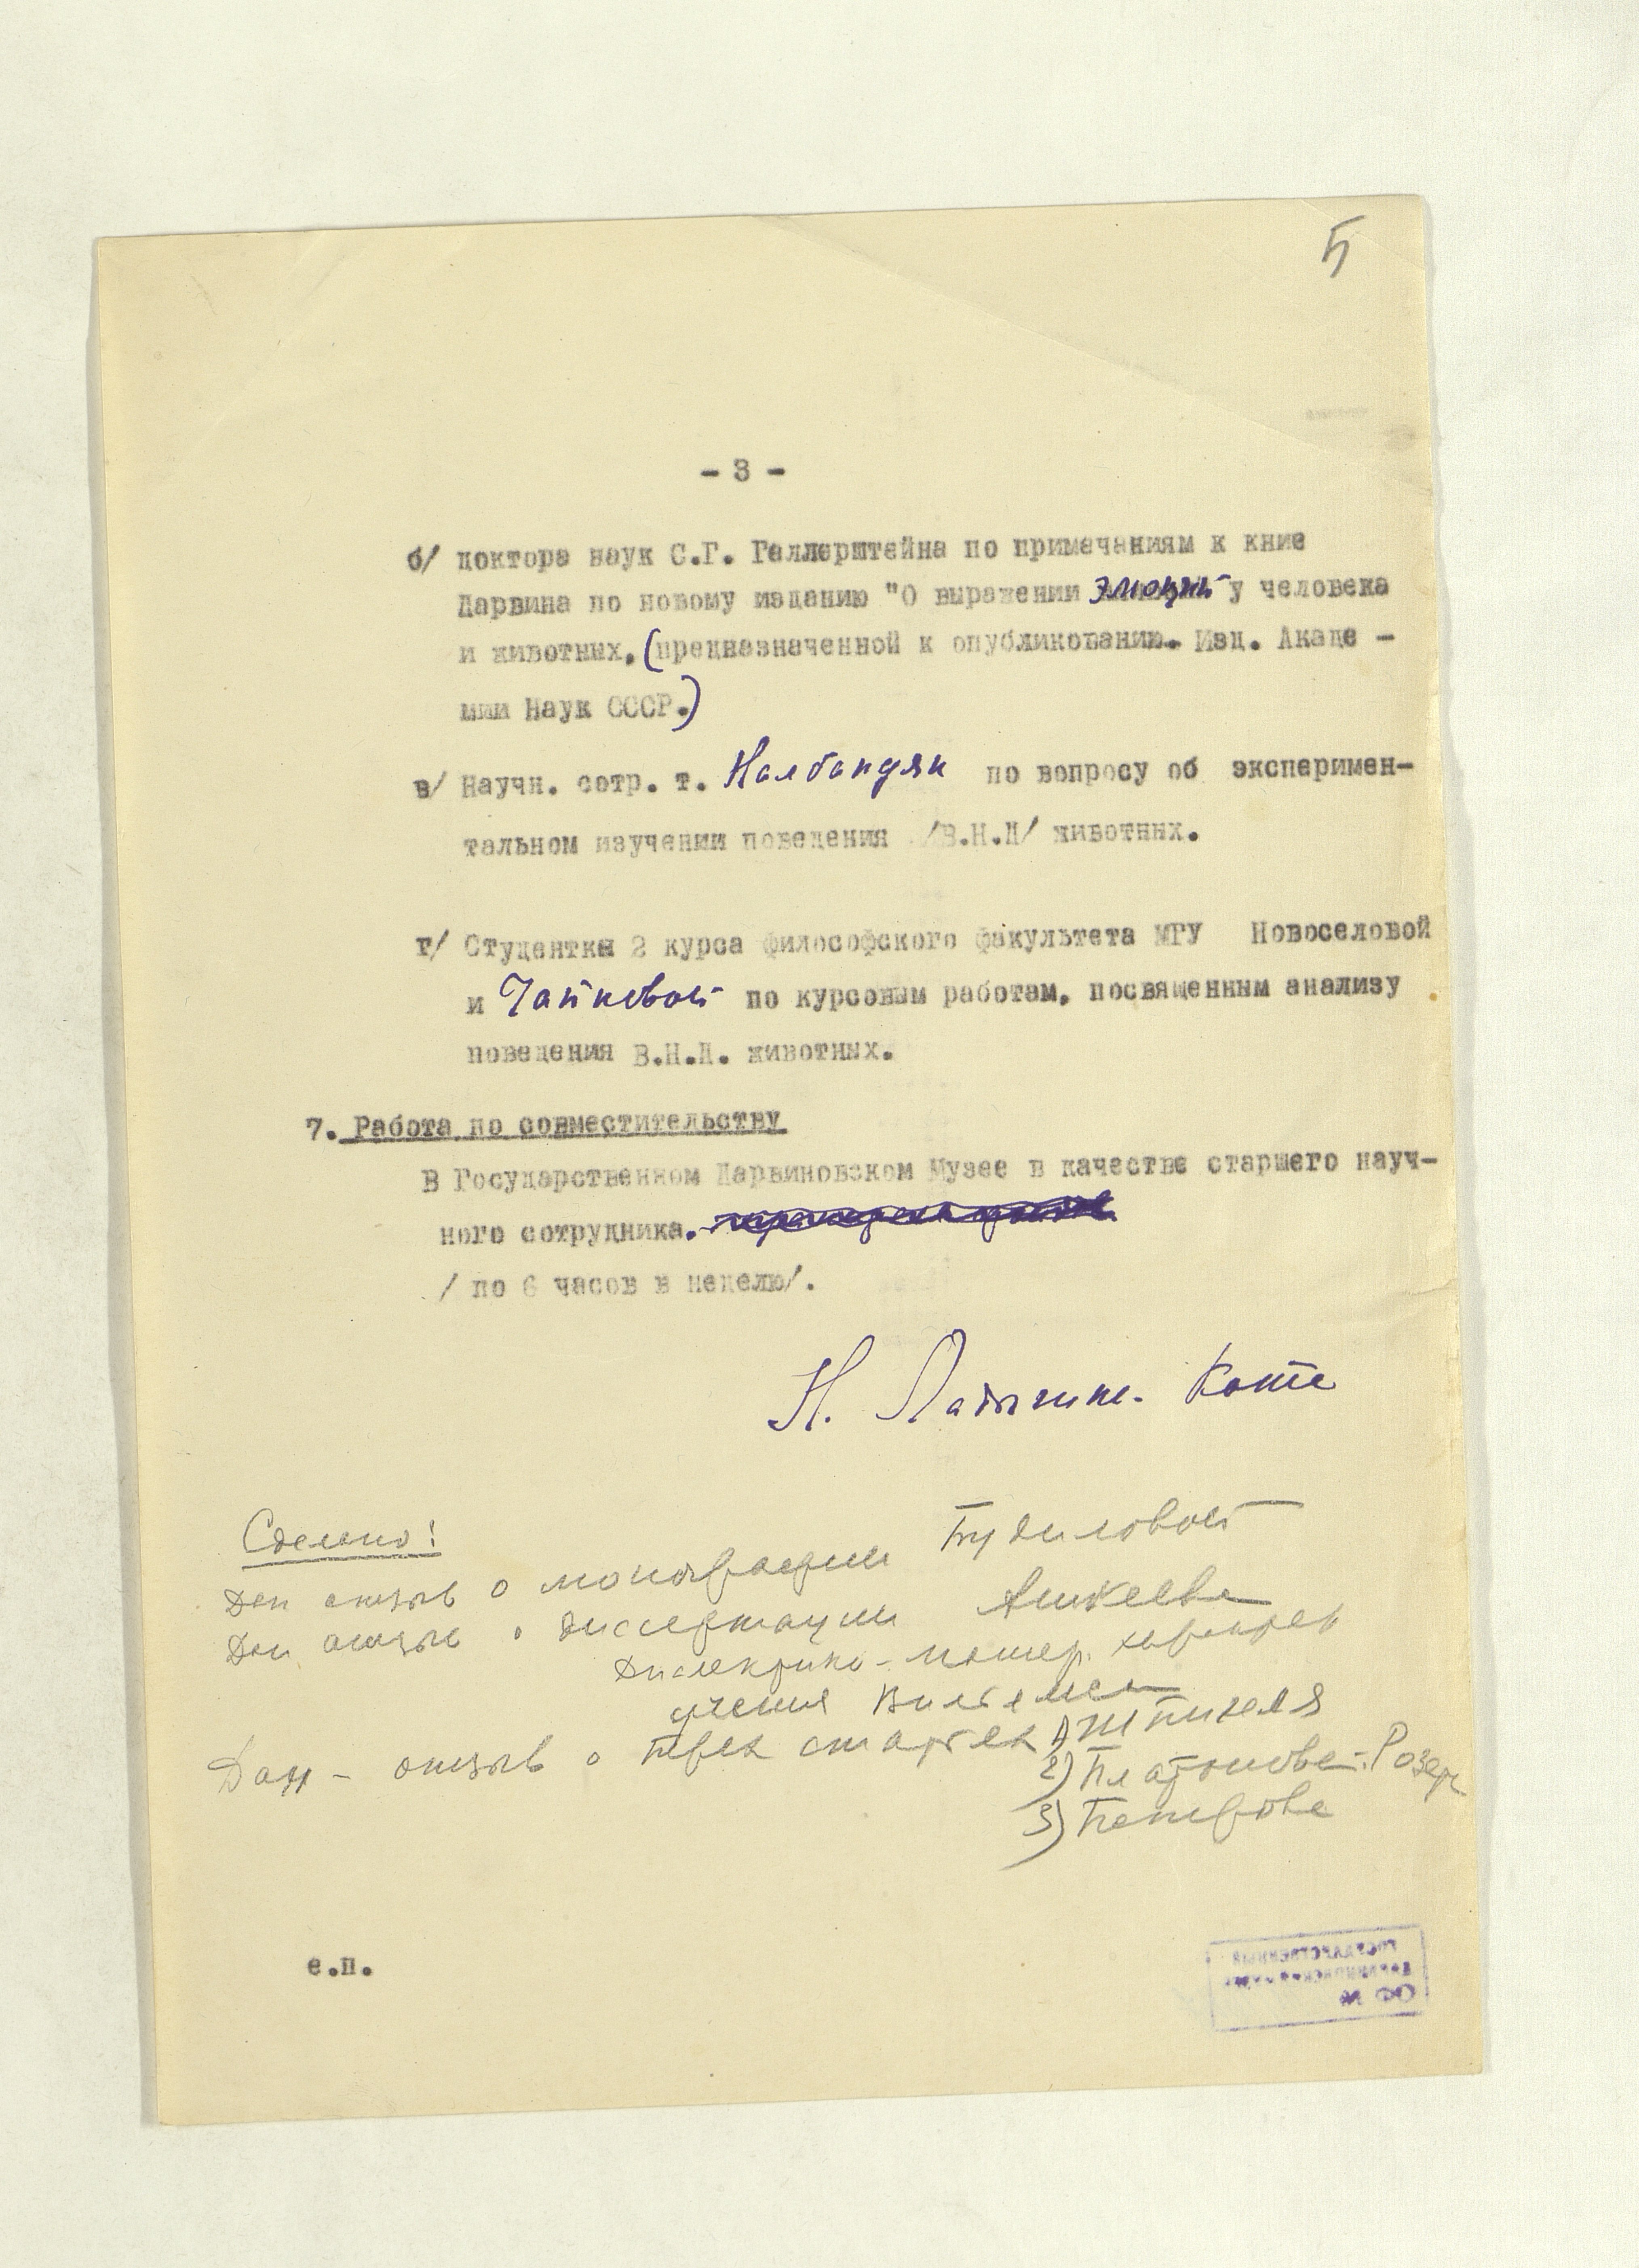 5
- 3 -
б/ доктора наук С.Г. Геллерштейна по примечаниям к кние
Дарвина по новому изданию "О выражении эмоций у человека
и животных, (предназначенной к опубликованию. Изд. Акаде -
мии Наук СССР.)
в/ Научн. сотр. т. Налбандян по вопросу об эксперимен-
тальном изучении поведения /В.Н.Д/ животных.
г/ Студентки 2 курса философского факультета МГУ Новоселовой
и Чайковой по курсовым работам, посвященным анализу
поведения В.Н.Д. животных.
7. Работа по совместительству
В Государственном Дарвиновском Музее в качестве старшего науч-
ного сотрудника.
/ по 6 часов в неделю/.
Н. Ладыгина-Котс
Сделано:
Дан отзыв о монографии Будиловой
Дан отзыв о диссертации
Диалектико-матер. характер
учения Вильямса
Дан - отзыв о трех статьях 1) Шпигеля
2) Платонова
3) Петрова
е.п.
ГОСУДАРСТВЕННЫЙ
ОФ №